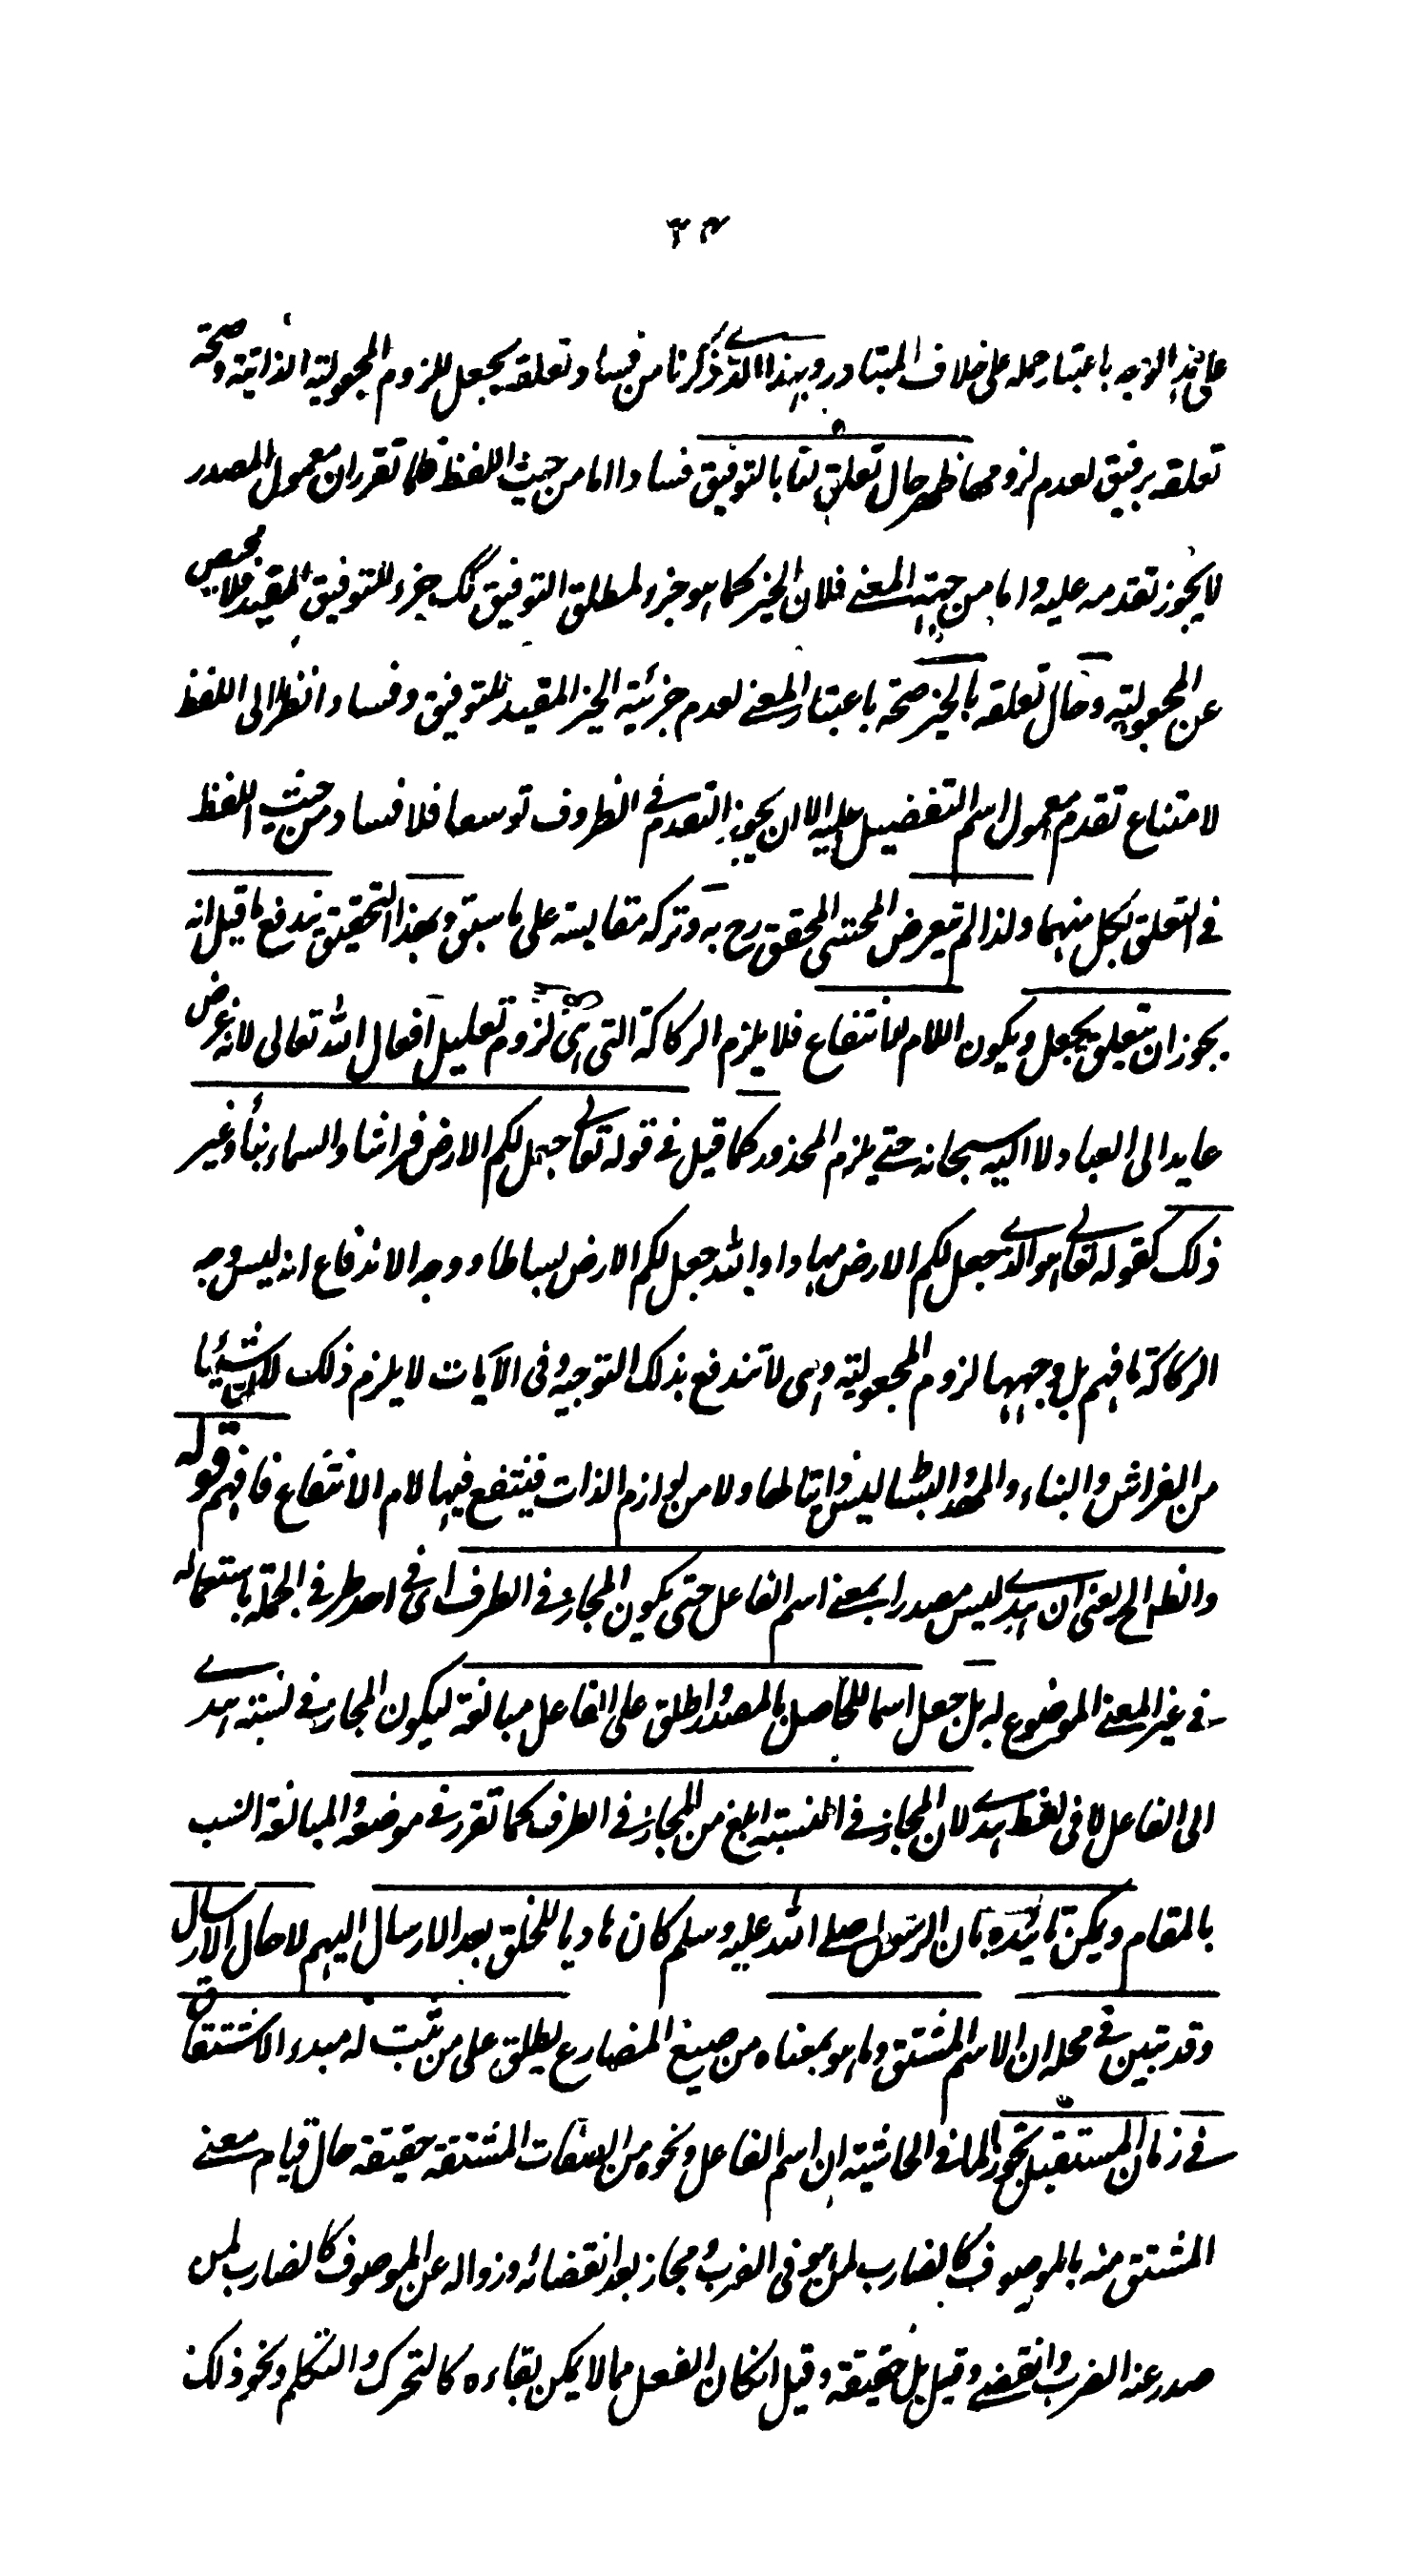 ٣٤
على هذا الوجه باعتبار حمله على خلاف المتبادر وبهذا الذي ذكرنا من فساد تعلقه بجعل للزوم المجعولية الذاتية وصحة
تعلقه برفيق لعدم لزومها ظهر حال تعلق لنا بالتوفيق فسادا اما من حيث اللفظ فلما تقرر ان معمول المصدر
لا يجوز تقدمه عليه واما من جهة المعنى فلان الخير كما هو جزء لمطلق التوفيق كك جزء للتوفيق المقيد فلا محيص
عن المجعولية وحال تعلقه بالخير صحة باعتبار المعنى لعدم جزئية الخير المقيد للتوفيق وفسادا نظرا الى اللفظ
لامتناع تقدم معمول اسم التفضيل عليه الا ان يجوز التقدم في الظروف توسعا فلا فساد من حيث اللفظ
في التعلق بكل منهما ولذا لم يتعرض المحشى المحقق رح به وتركه مقايسة على ما سبق وبهذا التحقيق يندفع ما قيل انه
يجوز ان يتعلق بجعل ويكون اللام للانتفاع فلا يلزم الركاكة التى هى لزوم تعليل افعال الله تعالى لانه غرض
عايد الى العباد لا اليه سبحانه حتى يلزم المحذور كما قيل في قوله تعالى جعل لكم الارض فراشا والسماء بناء وغير
ذلك كقوله تعالى هو الذي جعل لكم الارض مهادا والله جعل لكم الارض بساطا ووجه الاندفاع انه ليس وجه
الركاكة ما فهم بل وجهها لزوم المجعولية وهى لا تندفع بذلك التوجيه وفى الآيات لا يلزم ذلك لان شيئا
من الفراش والبناء والمهد والبساط ليس ذاتيا لها ولا من لوازم الذات فينتفع فيها لام الانتفاع فافهم قوله
والظ الخ يعنى ان هدى ليس مصدرا بمعنى اسم الفاعل حتى يكون المجاز في الطرف اى في احد طرفي الجملة باستعماله
في غير المعنى الموضوع له بل جعل اسما للحاصل بالمصدر واطلق على الفاعل مبالغة ليكون المجاز في نسبته هدى
الى الفاعل لا فى لفظ هدى لان المجاز في النسبة ابلغ من المجاز في الطرف كما تقرر في موضعه والمبالغة انسب
بالمقام ويمكن تائيده بان الرسول صلى الله عليه وسلم كان هاديا للخلق بعد الارسال اليهم لا حال الارسال
وقد تبين في محله ان الاسم المشتق وما هو بمعناه من صيغ المضارع يطلق على من يثبت له مبدء الاشتقاق
في زمان المستقبل تجوزا لما في الحاشية ان اسم الفاعل ونحوه من الصفات المشتقة حقيقة حال قيام معنى
المشتق منه بالموصوف كالضارب لمن هو فى الضرب ومجاز بعد انقضائه وزواله عن الموصوف كالضارب لمن
صدر عنه الضرب وانقضى وقيل بل حقيقة وقيل ان كان الفعل مما لا يمكن بقاءه كالتحرك والتكلم ونحو ذلك